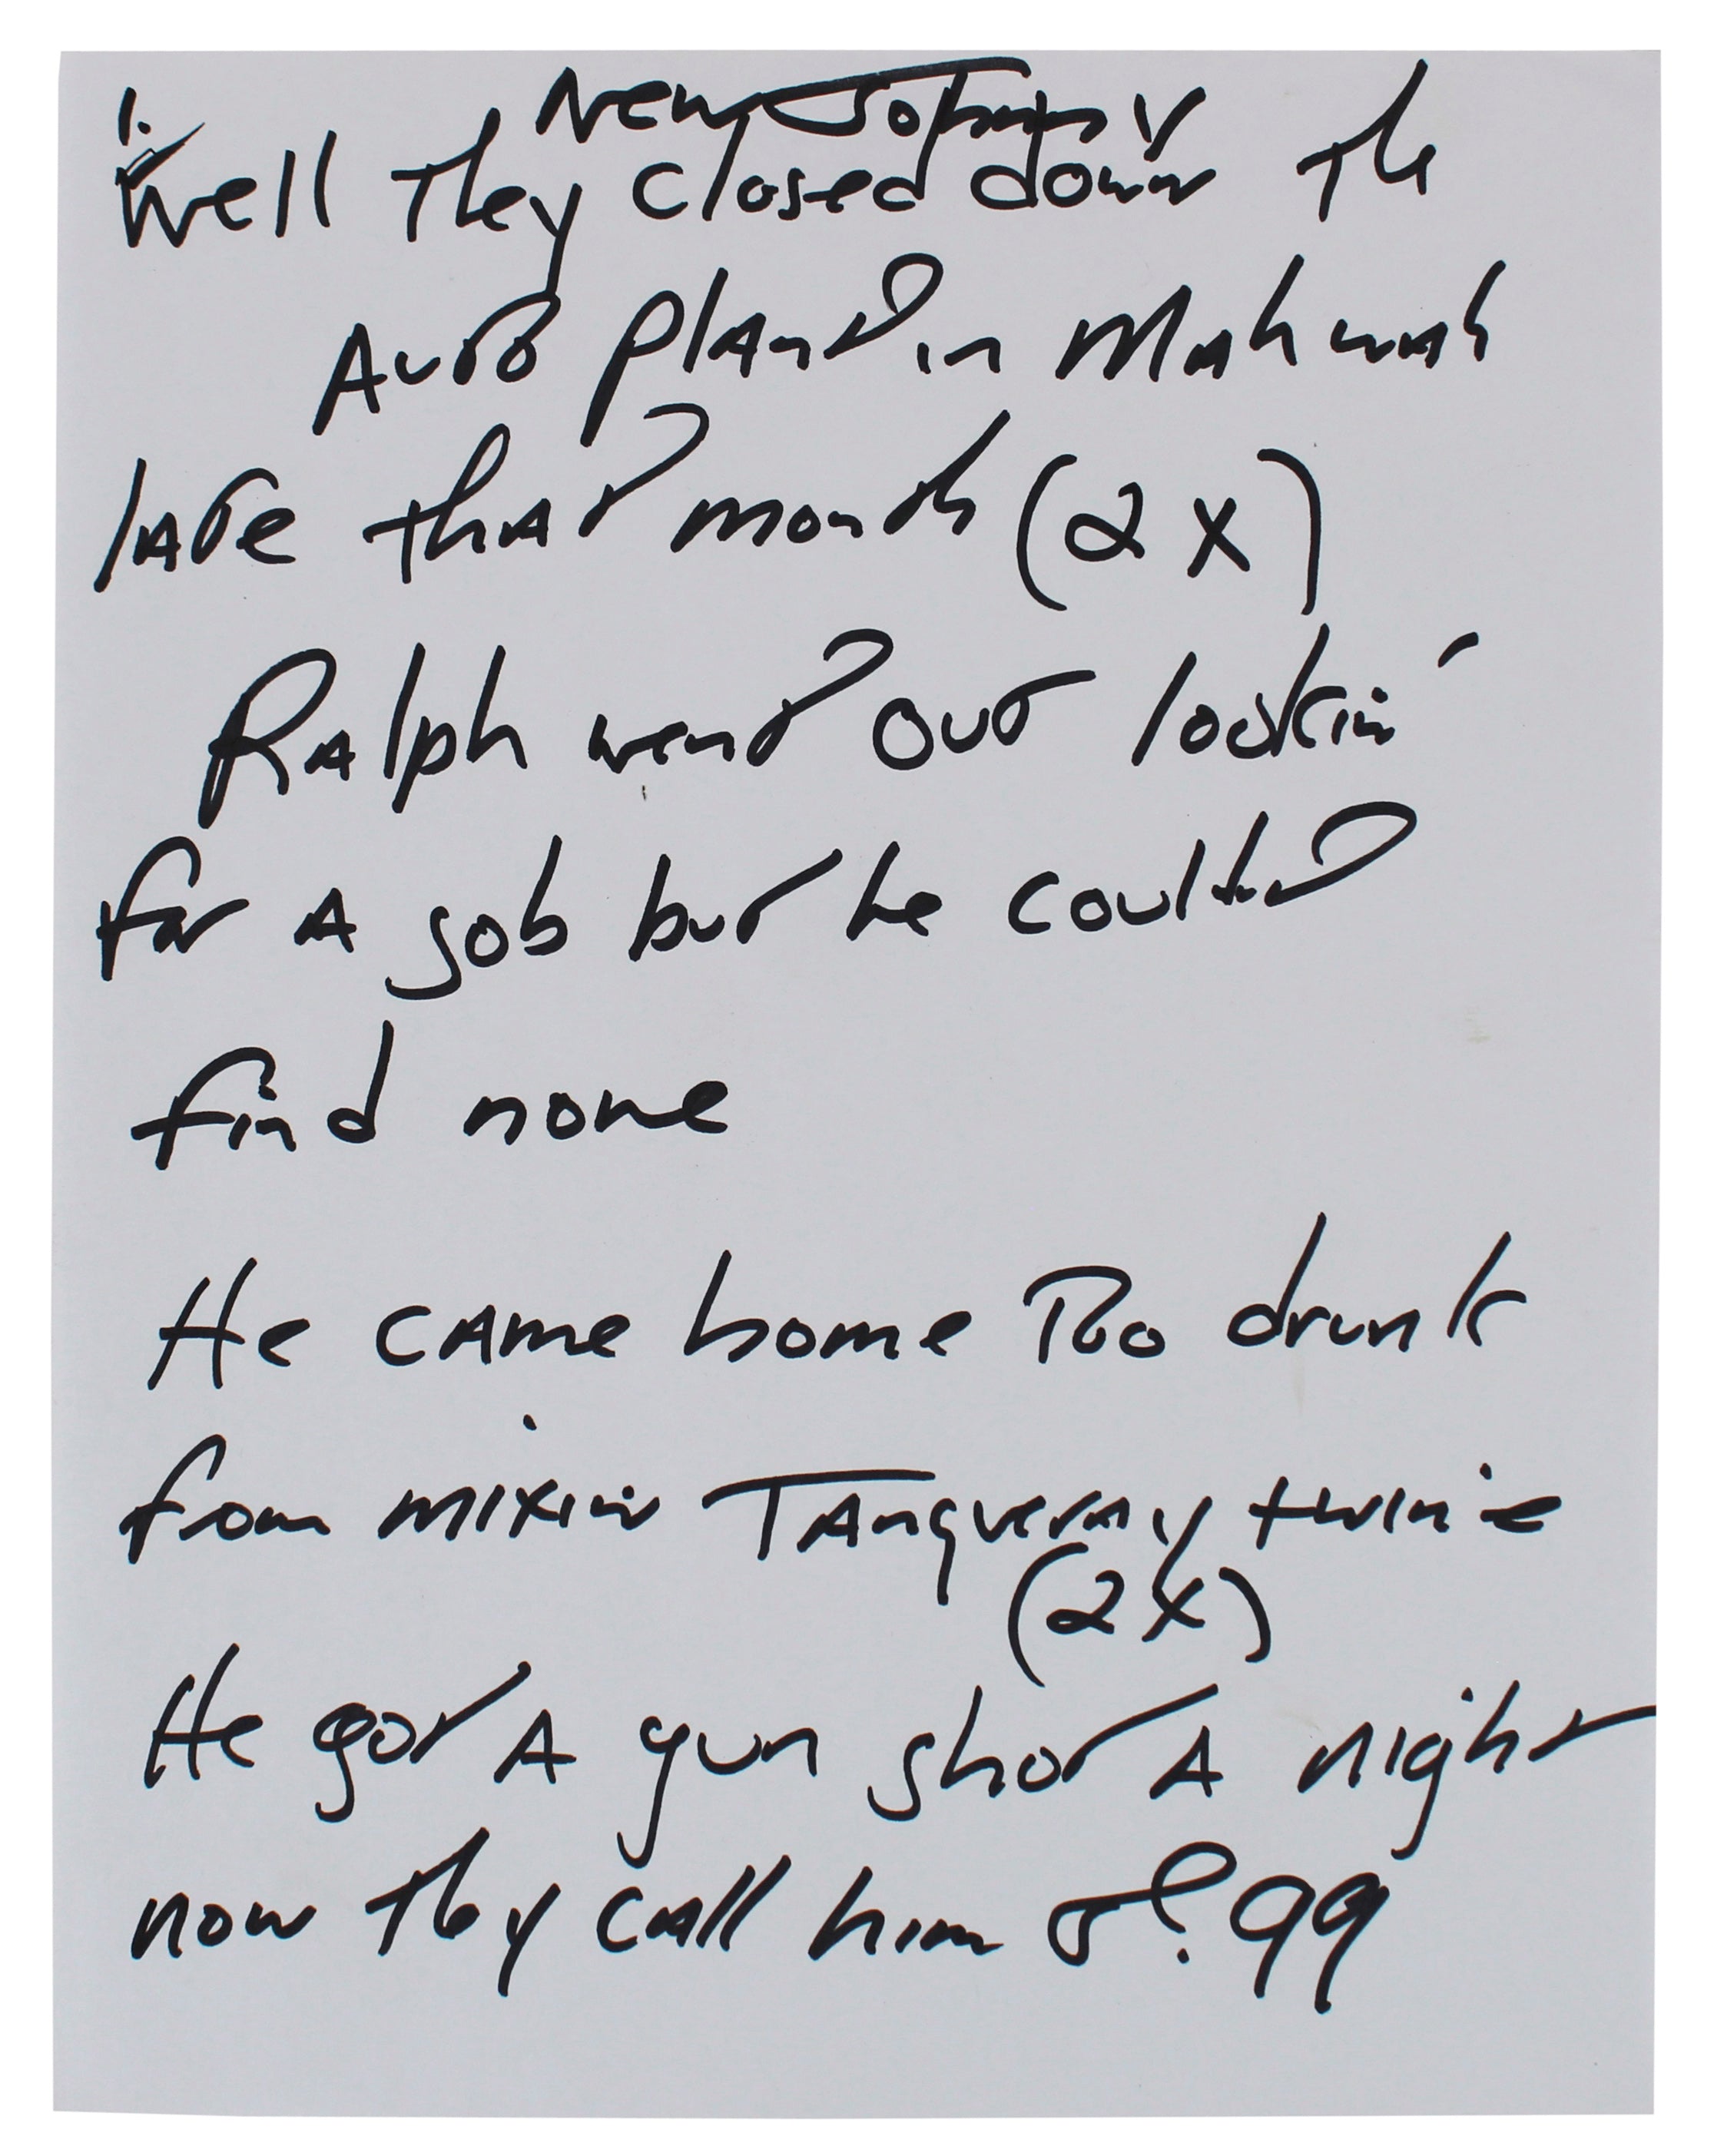 New Johnny
1.
Well they closed down the
Auto plant in Mahwah
late that month (2X)
Ralph went out lookin'
for A job but he couldnt
find none
He came home Too drunk
from mixin TAnqueray + wine
(2X)
He got A gun shot A night
now they call him J. 99